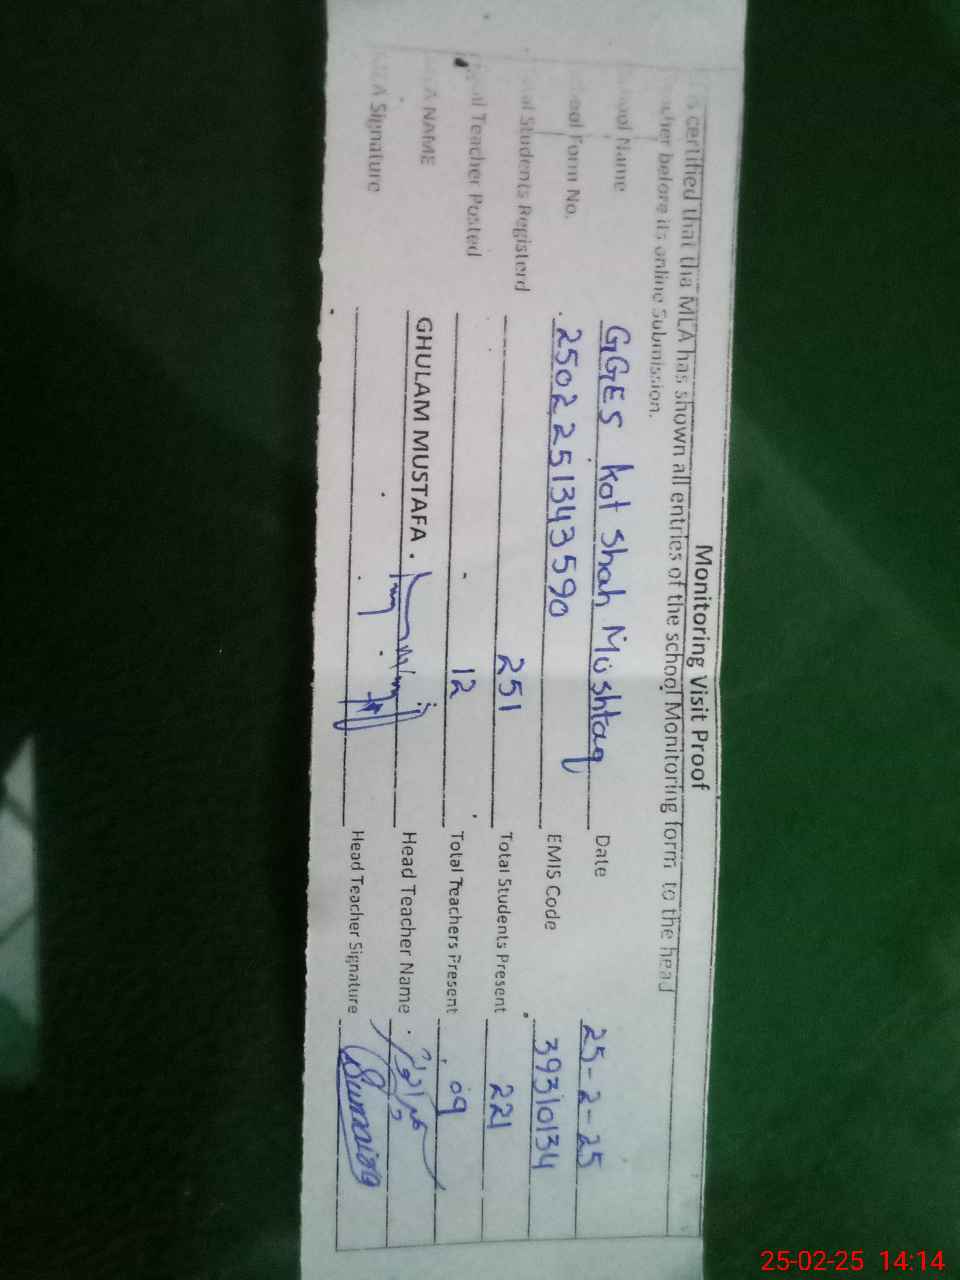 Monitoring Visit Proof
certified that tha MEA has shown all entries of the school Monitoring form to the head
before its online Submission.
Name GGES Kot Shah Mushtaq Date 25-2-25
Form No. 2502251343590 EMIS Code 39310134
Students Registerd 251 Total Students Present 221
Teacher Posted 12 Total Teachers Present 09
NAME GHULAM MUSTAFA Head Teacher Name
Signature Head Teacher Signature
25-02-25 14:14